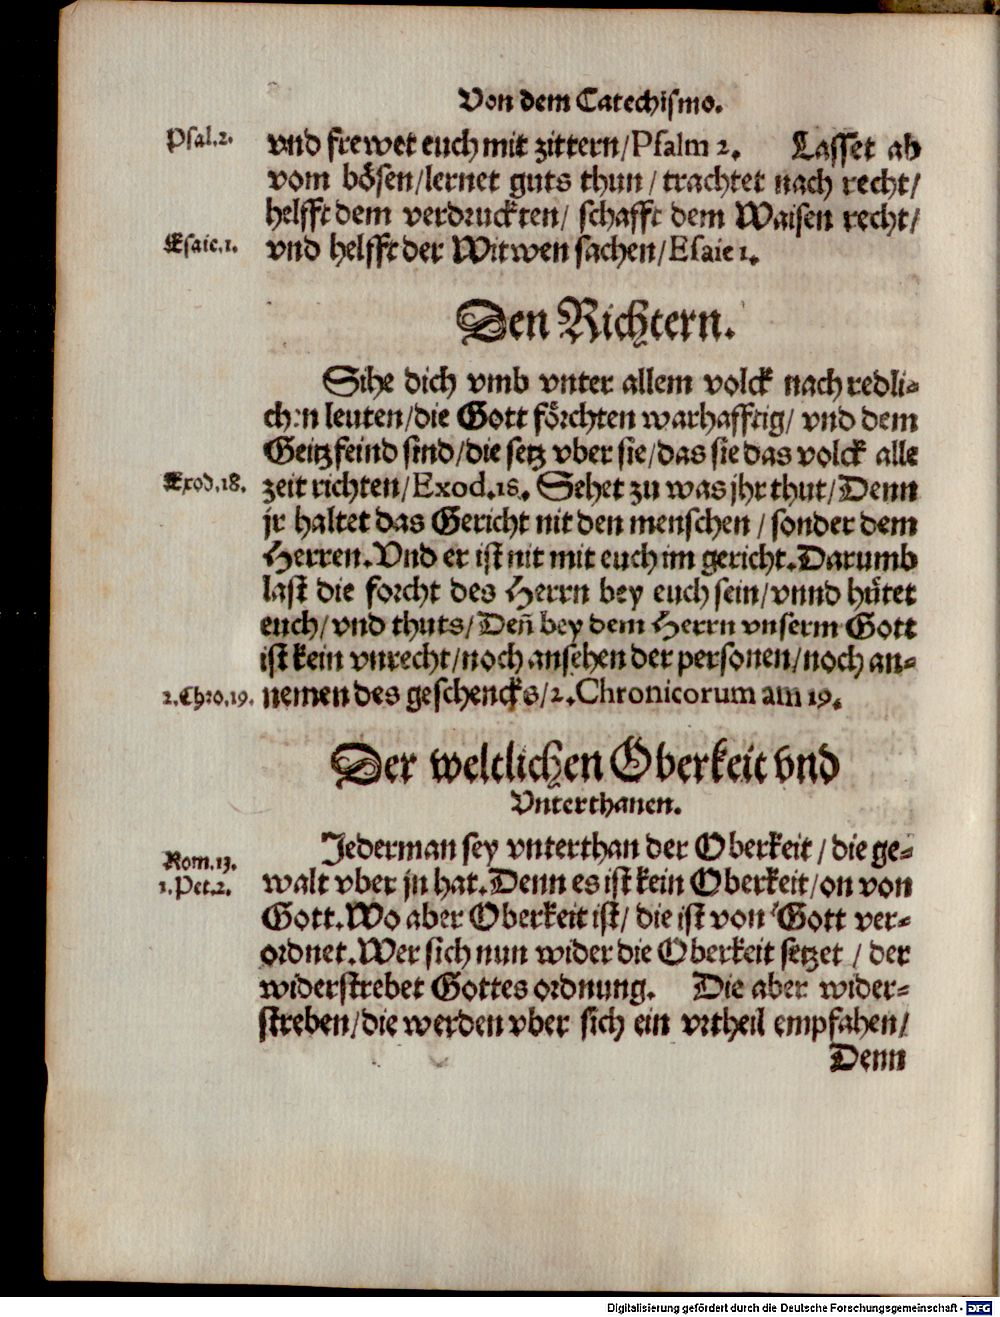 Von dem Catechismo.
Psal.2.
vnd frewet euch mit zittern/Psalm 2. Lasset ab
vom bösen/lernet guts thun/trachtet nach recht/
helfft dem verdruckten/ schafft dem Waisen recht/
Esaie.1.
vnd helfft der Witwen sachen/Esaie 1.
Den Richtern.
Sihe dich vmb vnter allem volck nach redli-
chen leuten/die Gott förchten warhafftig/ vnd dem
Geitz feind sind/die setz vber sie/das sie das volck alle
Exod.18.
zeit richten/Exod.18. Sehet zu was jhr thut/Denn
jr haltet das Gericht nit den menschen/sonder dem
Herren.Vnd er ist nit mit euch im gericht.Darumb
last die forcht des Herrn bey euch sein/vnnd hütet
euch/vnd thuts/Deñ bey dem Herrn vnserm Gott
ist kein vnrecht/noch ansehen der personen/noch an-
2.Chro.19.
nemen des geschencks/2.Chronicorum am 19.
Der weltlichen Oberkeit vnd
Vnterthanen.
Jederman sey vnterthan der Oberkeit/die ge-
Rom.13.
1.Pet.2.
walt vber jn hat.Denn es ist kein Oberkeit/on von
Gott.Wo aber Oberkeit ist/ die ist von Gott ver-
ordnet.Wer sich nun wider die Oberkeit setzet/ der
widerstrebet Gottes ordnung. Die aber wider-
streben/die werden vber sich ein vrtheil empfahen/
Denn
Digitalisierung gefördert durch die Deutsche Forschungsgemeinschaft - DFG